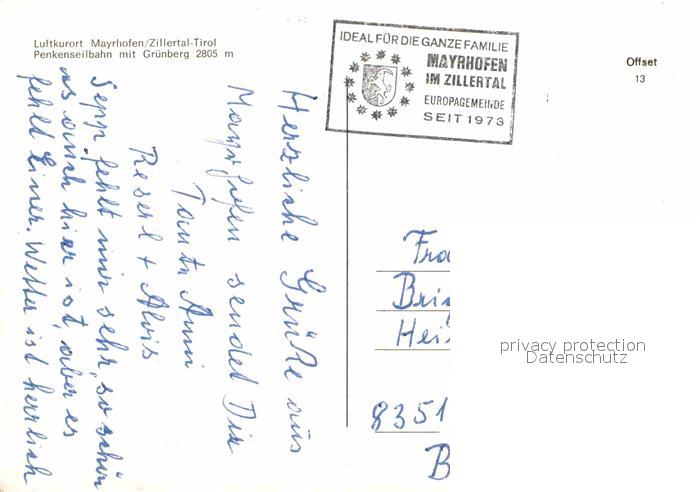 Luftkurort Mayrhofen/Zillertal-Tirol
Penkenseilbahn mit Grünberg 2805 m
IDEAL FÜR DIE GANZE FAMILIE
MAYRHOFEN
IM ZILLERTAL
EUROPAGEMEINDE
SEIT 1973
Offset
13
Herzliche Grüße aus
Mayrhofen sendet Dir
Tante Anni
Reserl + Alois
Sepp fehlt mir sehr, so schön
es auch hier ist, aber es
fehlt Einer. Wetter ist herrlich
Fra
Bri
Hei
8351
B
privacy protection
Datenschutz